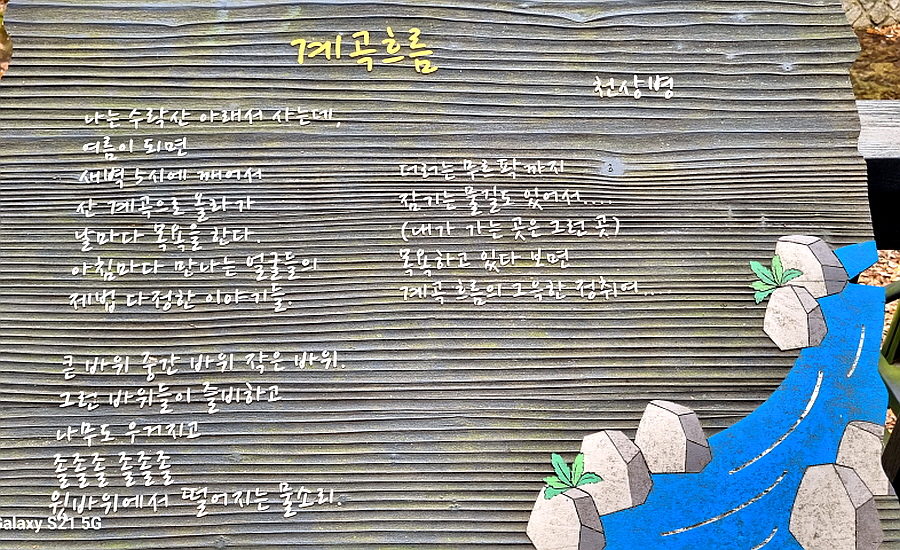 계곡흐름
천상병
나는 수락산 아래서 사는데,
여름이 되면
새벽 5시에 깨어서
산 계곡으로 올라가
날마다 목욕을 한다.
아침마다 만나는 얼굴들의
제법 다정한 이야기들.
큰 바위 중간 바위 작은 바위.
그런 바위들이 즐비하고
나무도 우거지고
졸졸졸 졸졸졸
윗바위에서 떨어지는 물소리.
더러는 무르팍까지
잠기는 물길도 있어서....
(내가 가는 곳은 그런 곳)
목욕하고 있다 보면
계곡 흐름의 그윽한 정취여.....
Galaxy S21 5G